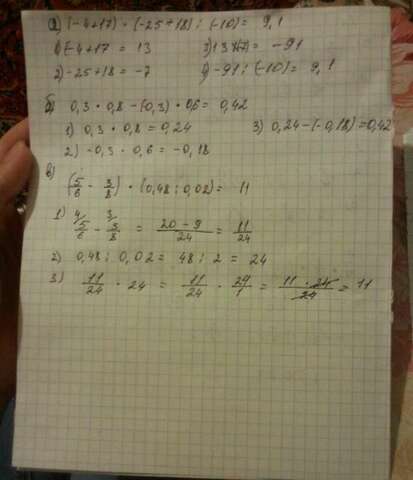 а) (-4+17) · (-25+18) : (-10) = 9,1
1) -4+17 = 13 3) 13·(-7) = -91
2) -25+18 = -7 4) -91 : (-10) = 9,1
б) 0,3 · 0,8 - (0,3) · 0,6 = 0,42
1) 0,3 · 0,8 = 0,24 3) 0,24 - (-0,18) = 0,42
2) -0,3 · 0,6 = -0,18
в) (5/6 - 3/8) · (0,48 : 0,02) = 11
1) 4/ 5/6 - 3/ 3/8 = (20 - 9)/24 = 11/24
2) 0,48 : 0,02 = 48 : 2 = 24
3) 11/24 · 24 = 11/24 · 24/1 = (11 · 24)/24 = 11